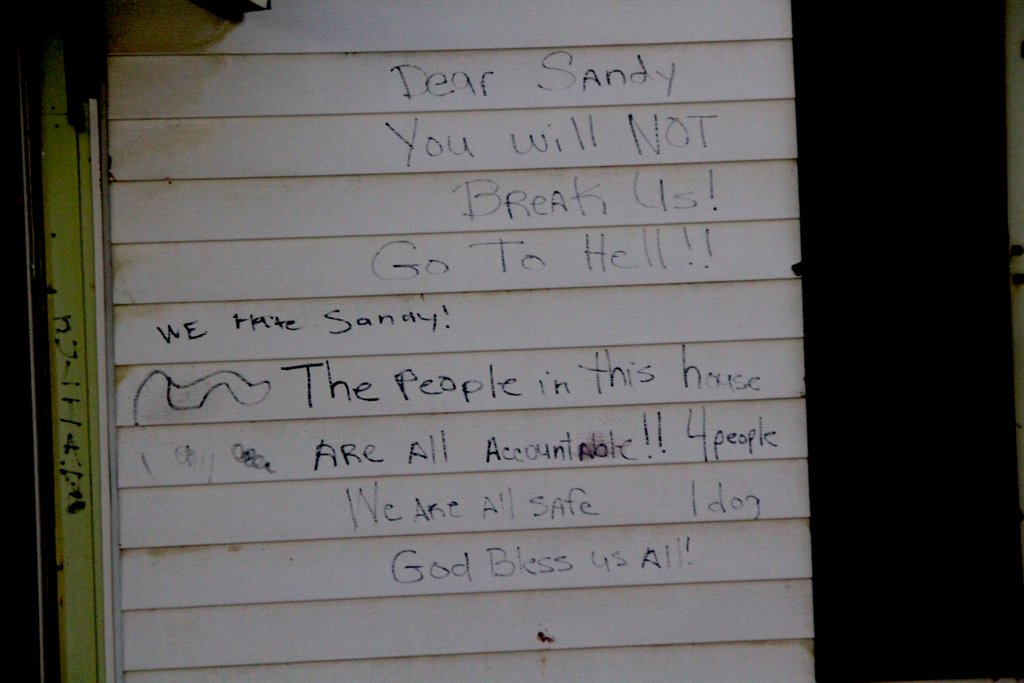 Dear Sandy
You will NOT
Break Us!
Go To Hell!!
WE Hate Sandy!
The People in this house
ARe All Accountable!! 4 people
We Are All safe 1 dog
God Bless us All!